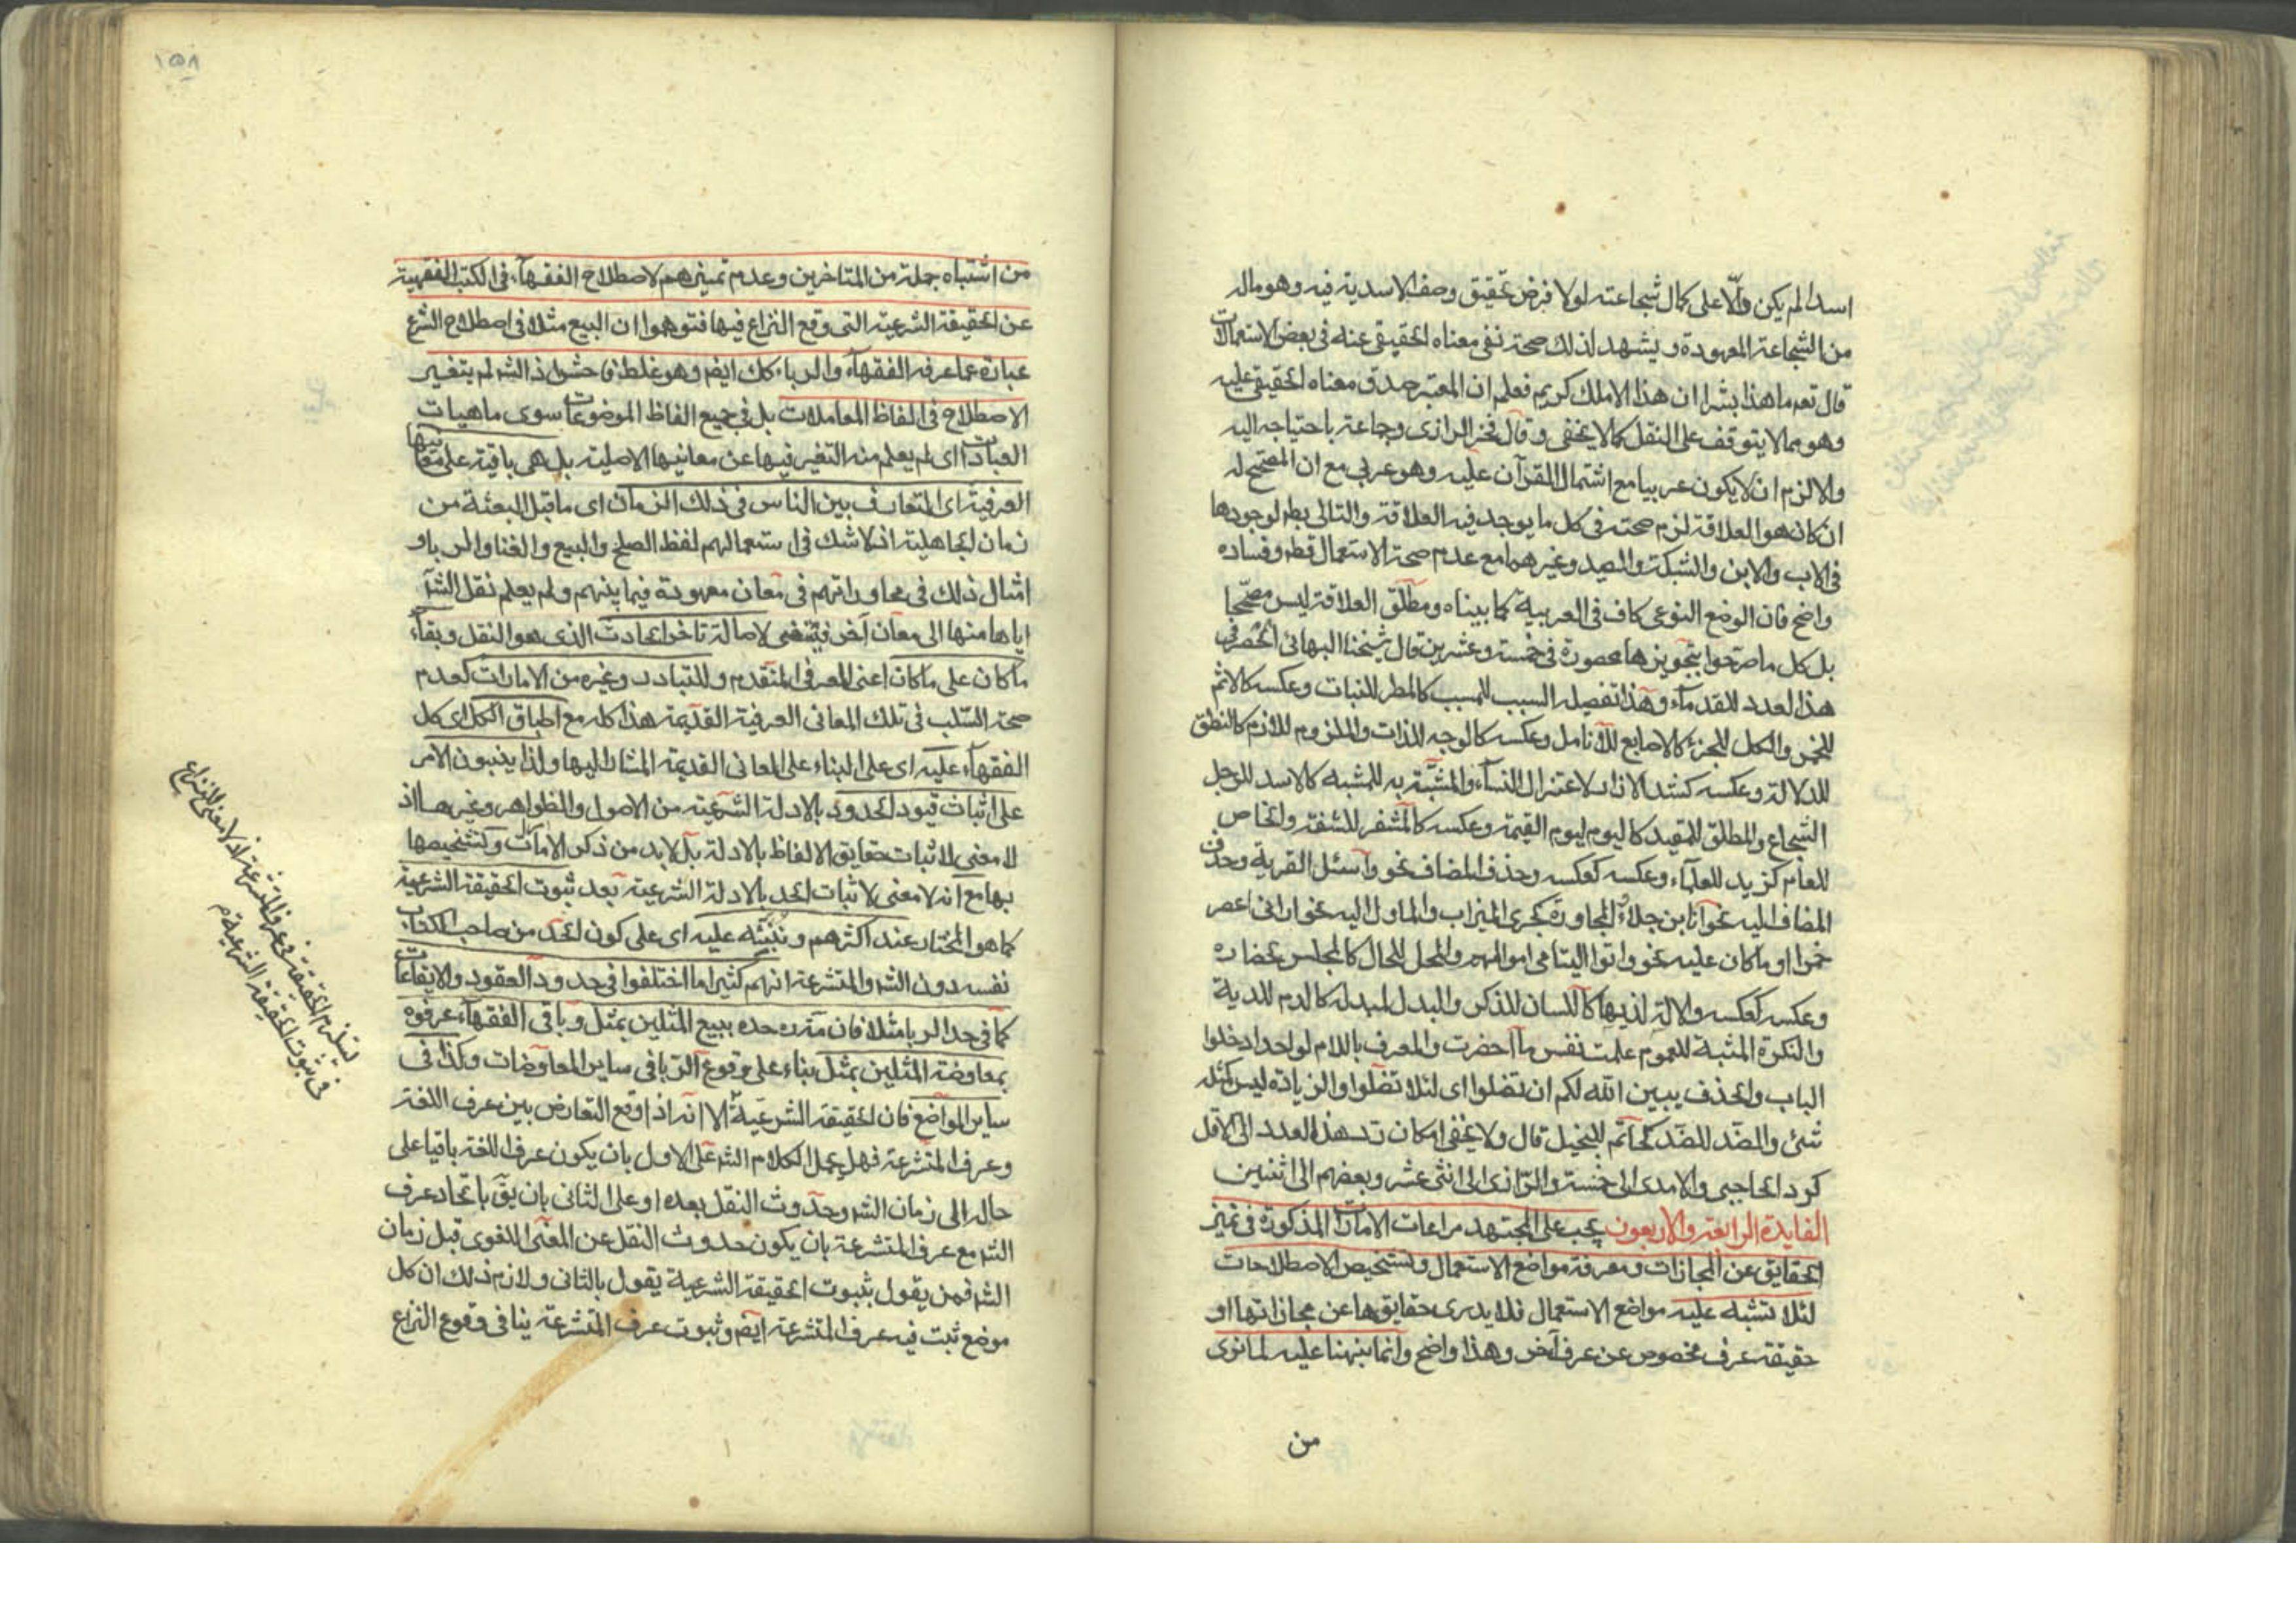 اسدا لم يكن دالّا على كمال شجاعته لولا فرض تحقيق وصف الاسدية فيه وهو ماله
من الشجاعة المعهودة ويشهد لذلك صحة نفى معناه الحقيقى عنه فى بعض الاستعمالات
قال تعه ما هذا بشرا ان هذا الا ملك كريم فعلم ان المعتبر صدق معناه الحقيقى عليه
وهو مما لا يتوقف على النقل كما لا يخفى وقال فخر الرازى وجماعة باحتياجه اليه
والا لزم ان لا يكون عربيا مع اشتمال القرآن عليه وهو عربى مع ان المصحح له
ان كان هو العلاقة لزم صحته فى كل ما يوجد فيه العلاقة والتالى بط لوجودها
فى الاب والابن والشبكة والصيد وغيرهما مع عدم صحة الاستعمال قطه وفساده
واضح فان الوضع النوعى كاف فى العربية كما بيناه ومطلق العلاقة ليس مصحّحا
بل كل ما صرّحوا بتجويزها محصورة فى خمسة وعشرين قال شيخنا البهائى الحصر فى
هذا لعدد للقدمآء وهذا تفصيله السبب للمسبب كالمطر للنبات وعكسه كالاثم
للخمر والكل للجزء كالاصابع للانامل وعكسه كالوجه للذات والملزوم للازم كالنطق
للدلالة وعكسه كشد الازار لاعتزال النسآء والمشبّه به للمشبه كالاسد للرجل
الشجاع والمطلق للمقيد كاليوم ليوم القيمة وعكسه كالمشفر للشفة والخاص
للعام كزيد للعلمآء وعكسه كعكسه وحذف المضاف نحو واسئل القرية وحذف
المضاف اليه نحو انا بن جلاء والمجاورة كجرى الميزاب والماول اليه نحو ارانى اعصر
خمرا او ما كان عليه نحو واتوا اليتامى اموالهم والمحل للحال كالمجلس لحضاره
وعكسه كعكسه والالة لذيها كاللسان للذكر والبدل لمبدله كالدم للدية
والنكرة المثبة للعموم علمت نفس ما احضرت والمعرف باللام لواحد ادخلوا
الباب والحذف يبين الله لكم ان تضلوا اى لئلا تضلوا والزيادة ليس كمثله
شئ والضّد للضّد كحاتم للبخيل قال ولا يخفى امكان رد هذا العدد الى الاقل
كرد الحاجبى والامدى الى خمسة والرّازى الى اثنى عشر وبعضهم الى اثنين
الفايدة الرابعة والاربعون يجب على المجتهد مراعات الامارات المذكورة فى تميز
الحقايق عن المجازات ومعرفة مواضع الاستعمال وتشخيص الاصطلاحات
لئلا تشبه عليه مواضع الاستعمال فلا يدرى حقايقها عن مجازاتها او
حقيقة عرف مخصوص عن عرف آخر وهذا واضح وانما بنهنا عليه لما نوى
من
١٥٨
من اشتباه جملة من المتاخرين وعدم تميزهم لاصطلاح الفقهآء فى الكتب الفقهية
عن الحقيقة الشرعية التى وقع النزاع فيها فتوهموا ان البيع مثلا فى اصطلاح الشرع
عبارة عما عرفه الفقهآء والرباء كك ايضه وهو غلط فاحش اذ الشه لم يتغير
الاصطلاح فى الفاظ المعاملات بل فى جميع الفاظ الموضوعات سوى ماهيات
العبادات اى لم يعلم منه التغير فيها عن معانيها الاصلية بل هى باقية على معانيها
العرفية اى المتعارف بين الناس فى ذلك الزمان اى ما قبل البعثة من
زمان الجاهلية اذ لا شك فى استعمالهم لفظ الصلح والبيع والغنا والربا و
امثال ذلك فى محاوراتهم فى معان معهودة فيما بينهم ولم يعلم نقل الشه
اياها منها الى معان آخر فيقتضى لاصالة تاخر الحادث الذى هو النقل وبقآء
ما كان على ما كان اعنى العرفى المتقدم وللتبادر وغيره من الامارات كعدم
صحة السّلب فى تلك المعانى العرفية القديمة هذا كله مع اطباق الكل اى كل
الفقهآء عليه اى على البناء على المعانى القديمة المشار اليها ولذا ينسبون الامر
على اثبات قيود الحدود بالادلة الشرعية من الاصول والظواهر وغيرها اذ
لا معنى لاثبات حقايق الالفاظ بالادلة بل لا بد من ذكر الامارات وتشخيصها
بها مع انه لا معنى لاثبات الحد بالادلة الشرعية بعد ثبوت الحقيقة الشرعية
كما هو المختار عند اكثرهم وننبّه عليه اى على كون الحد من صاحب الكتاب
نفسه دون الشه والمتشرعة انهم كثيرا ما اختلفوا فى حدود العقود والايقاعات
كما فى حد الربا مثلا فان مرّه حده ببيع المثلين بمثل وباقى الفقهآء عرفوه
بمعاوضة المثلين بمثل بناء على وقوع الربا فى ساير المعاوضات وكذا فى
ساير المواضع فان الحقيقة الشرعيّة الا انه اذا وقع التعارض بين عرف اللغة
وعرف المتشرعة فهل يحمل الكلام الشه على الاول بان يكون عرف اللغة باقيا على
حاله الى زمان الشه وحدوث النقل بعده او على الثانى بان يقّ باتحاد عرف
الشه مع عرف المتشرعة بان يكون حدوث النقل عن المعنى اللغوى قبل زمان
الشه فمن يقول بثبوت الحقيقة الشرعية يقول بالثانى ولازم ذلك ان كل
موضع ثبت فيه عرف المتشرعة ايضه وثبوت عرف المتشرعة ينافى وقوع النزاع
يستلزم الحقيقة فى عرف المتشرعة اذ لا معنى للنزاع
فى ثبوت الحقيقة الشرعية م